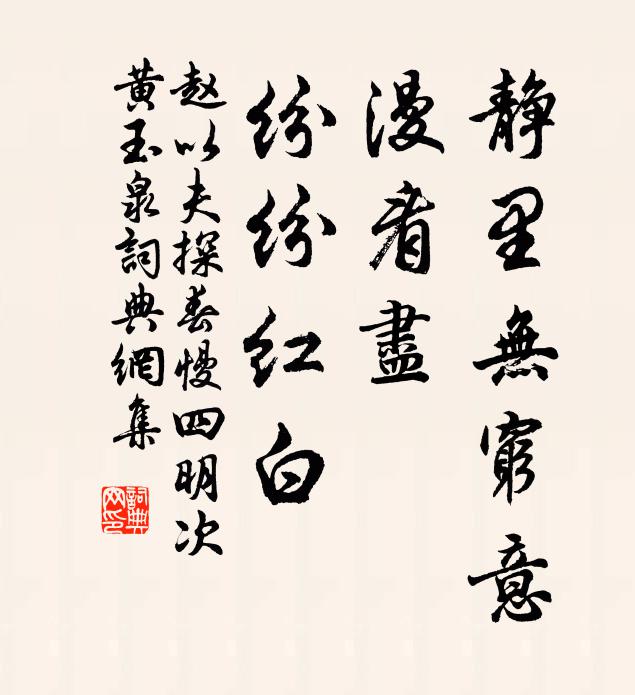 静里無窮意
漫看盡
紛紛紅白
赵以夫探春慢四明次
黄玉泉詞典網集
詞典网印